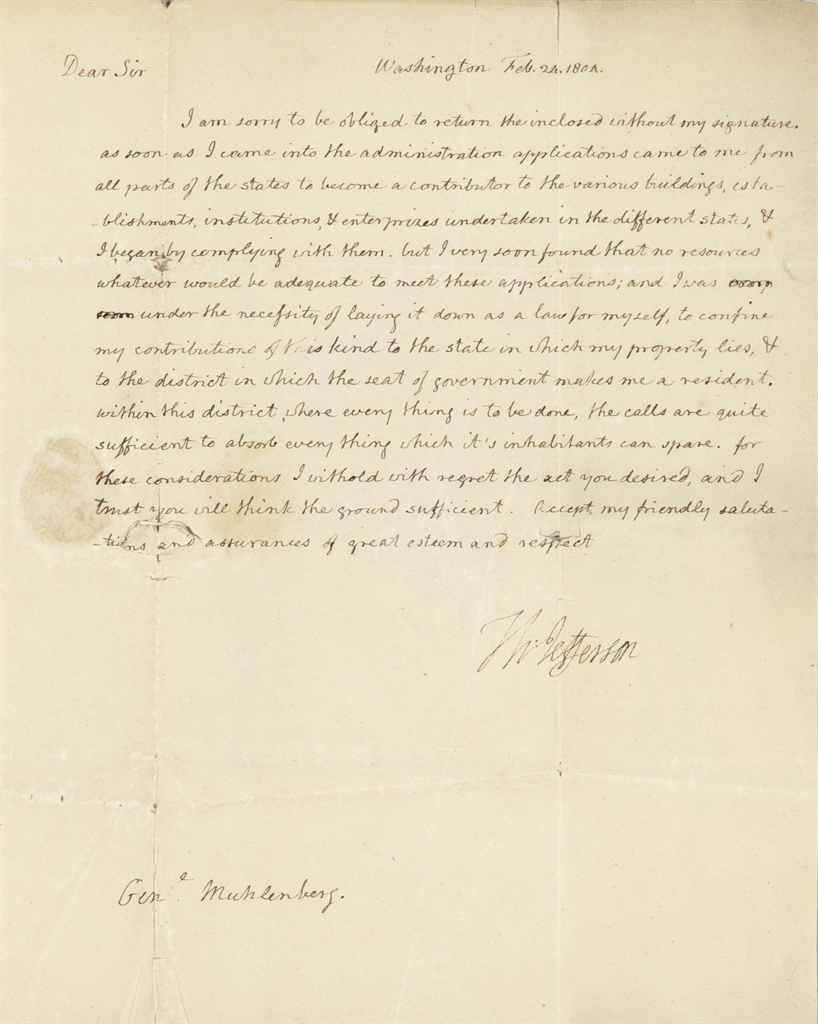 Dear Sir Washington Feb. 24. 1804.
I am sorry to be obliged to return the inclosed without my signature.
as soon as I came into the administration applications came to me from
all parts of the states to become a contributor to the various buildings, esta-
-blishments, institutions, & enterprizes undertaken in the different states, &
I began by complying with them. but I very soon found that no resources
whatever would be adequate to meet these applications; and I was
under the necessity of laying it down as a law for myself, to confine
my contributions of this kind to the state in which my property lies, &
to the district in which the seat of government makes me a resident.
within this district, where every thing is to be done, the calls are quite
sufficient to absorb every thing which it's inhabitants can spare. for
these considerations I withold with regret the act you desired, and I
trust you will think the ground sufficient. Accept my friendly saluta-
-tions and assurances of great esteem and respect
Th: Jefferson
Genl. Muhlenberg.